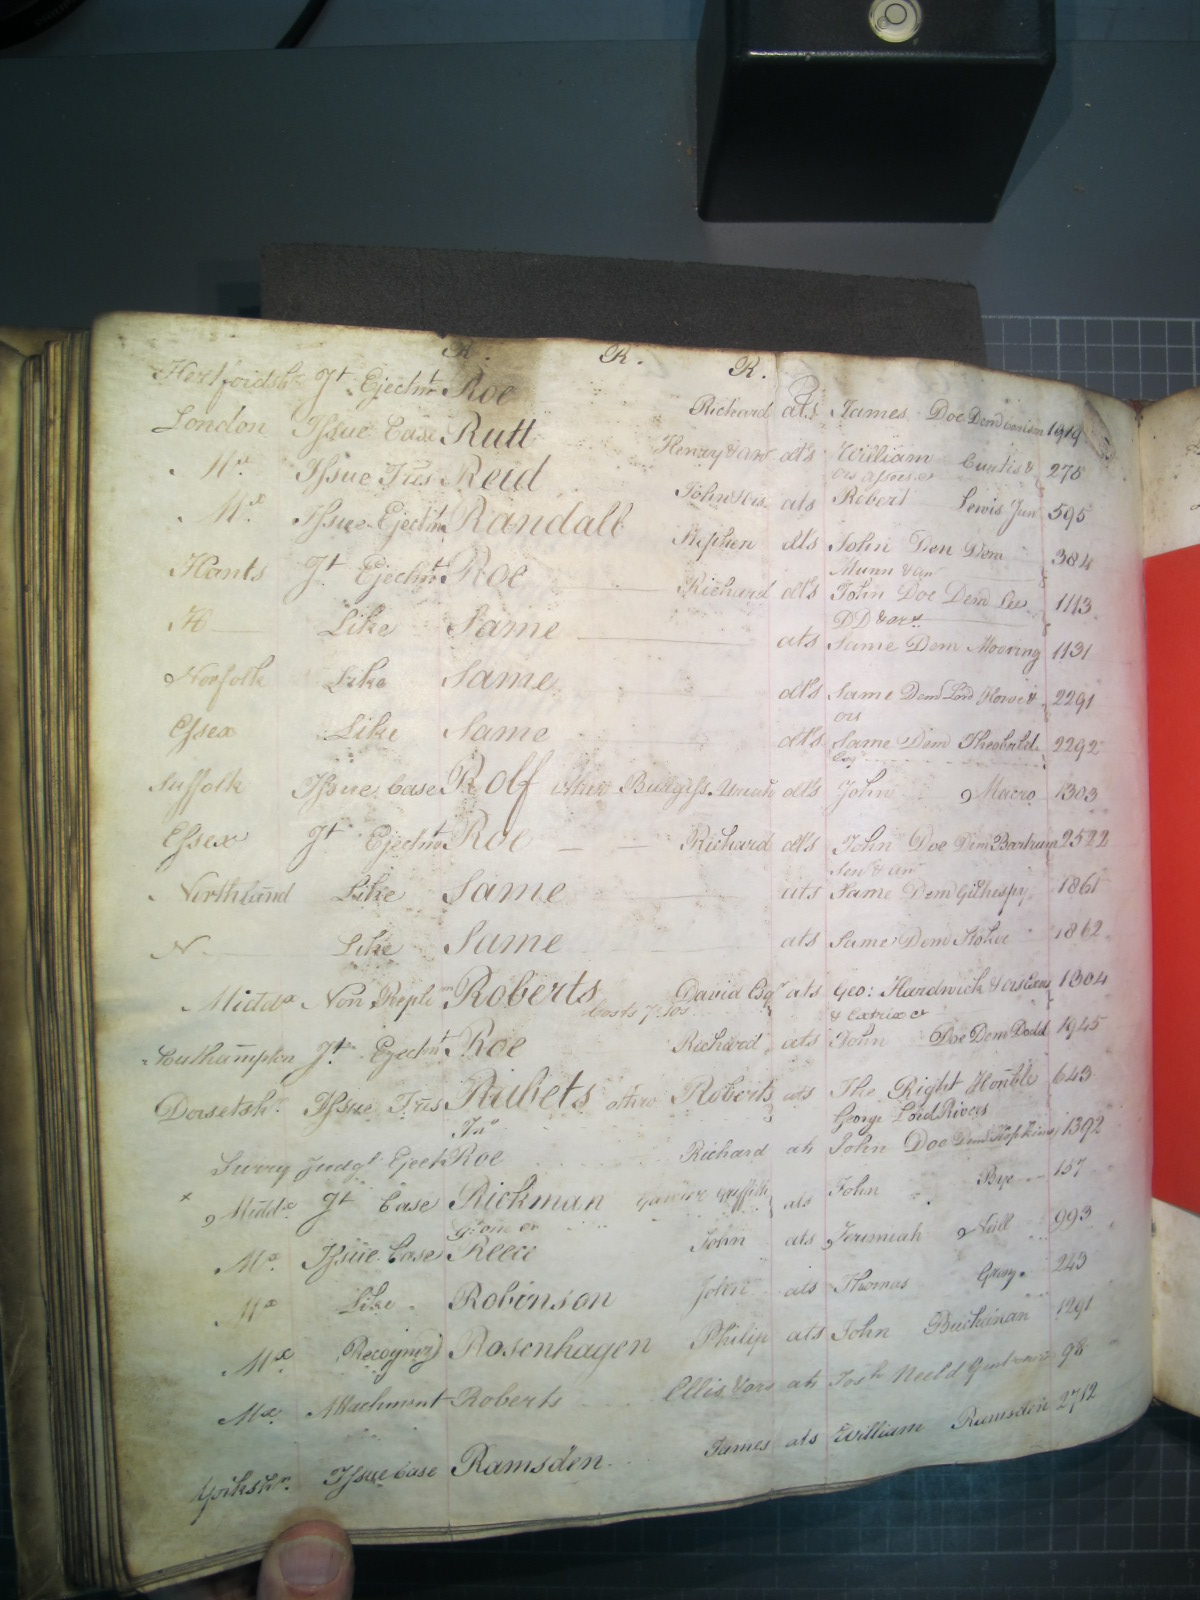 R. R. R.
Hertfordshr Jt Ejectmt Roe Richard ats James Doe Dem 1919
London Issue Case Rutt Henry & anr ats William Curtis & 275
ors assees &c
Mx Issue Tres Reid John ats Robert Lewis Junr 595
Mx Issue Ejectmt Randall Stephen ats John Den Dem 384
Munn & anr
Hants Jt Ejectmt Roe Richard ats John Doe Dem Lee 1113
DD & anr
H Like Same ats Same Dem Mooring 1131
Norfolk Like Same ats Same Dem Lord Howe & 2291
ors
Essex Like Same ats Same Dem Theobald 2292
Esq
Suffolk Issue Case Rolf ats John Macro 1303
Essex Jt Ejectmt Roe Richard ats John Doe Dem Bartrum 2522
Sen & anr
Northland Like Same ats Same Dem Gilhespy 1861
N Like Same ats Same Dem Stoker 1862
Middx Non Repli Roberts David Esqr ats Geo: Hardwick & ors Exors 1304
Costs 7 10s & Extrix &c
Southampton Jt Ejectmt Roe Richard ats John Doe Dem Dodd 1945
Dorsetshr Issue Tres Rubets otherw Roberts ats The Right Honble 643
George Lord Rivers
Surry Judgt Ejectt Roe Richard ats John Doe Dem Hopkins 1392
x Middx Jt Case Rickman Griffith ats John Bye 157
Mx Issue Case Reece John ats Jeremiah Nall 993
Mx Like Robinson John ats Thomas Gray 243
Mx Recogner Rosenhagen Philip ats John Buchanan 1291
Mx Attachment Roberts Ellis & ors ats Josh Neeld Gent 98
Yorkshr Issue Case Ramsden James ats William Ramsden 2712